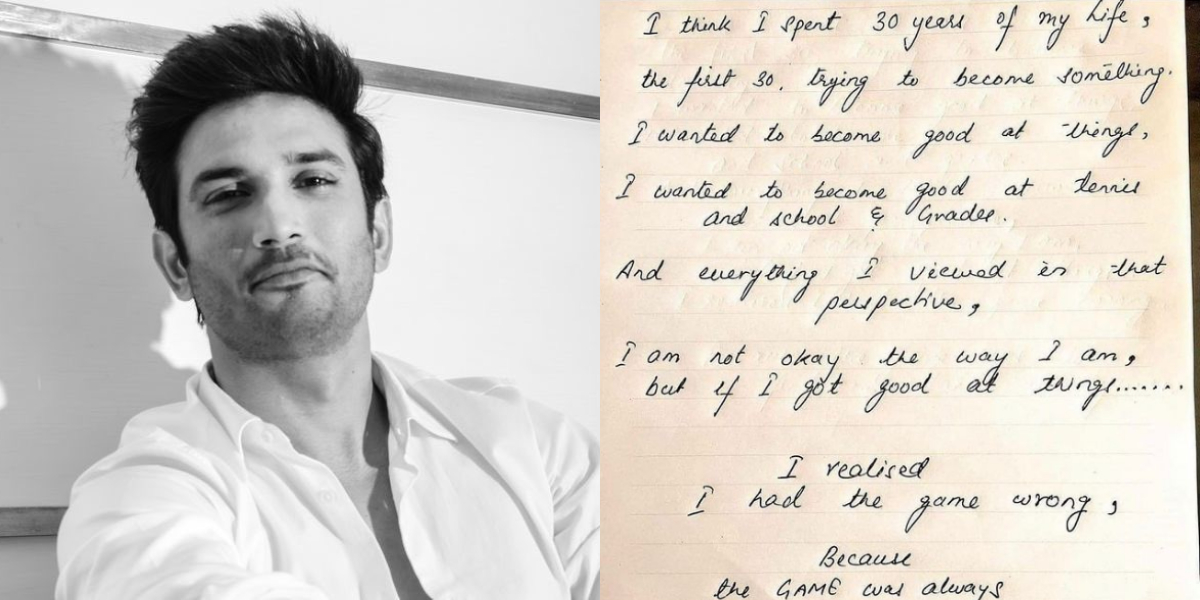 I think I spent 30 years of my life,
the first 30, trying to become something.
I wanted to become good at things,
I wanted to become good at tennis
and school & Grades.
And everything I viewed in that
perspective,
I am not okay the way I am,
but if I got good at things.......
I realised
I had the game wrong,
Because
the GAME was always